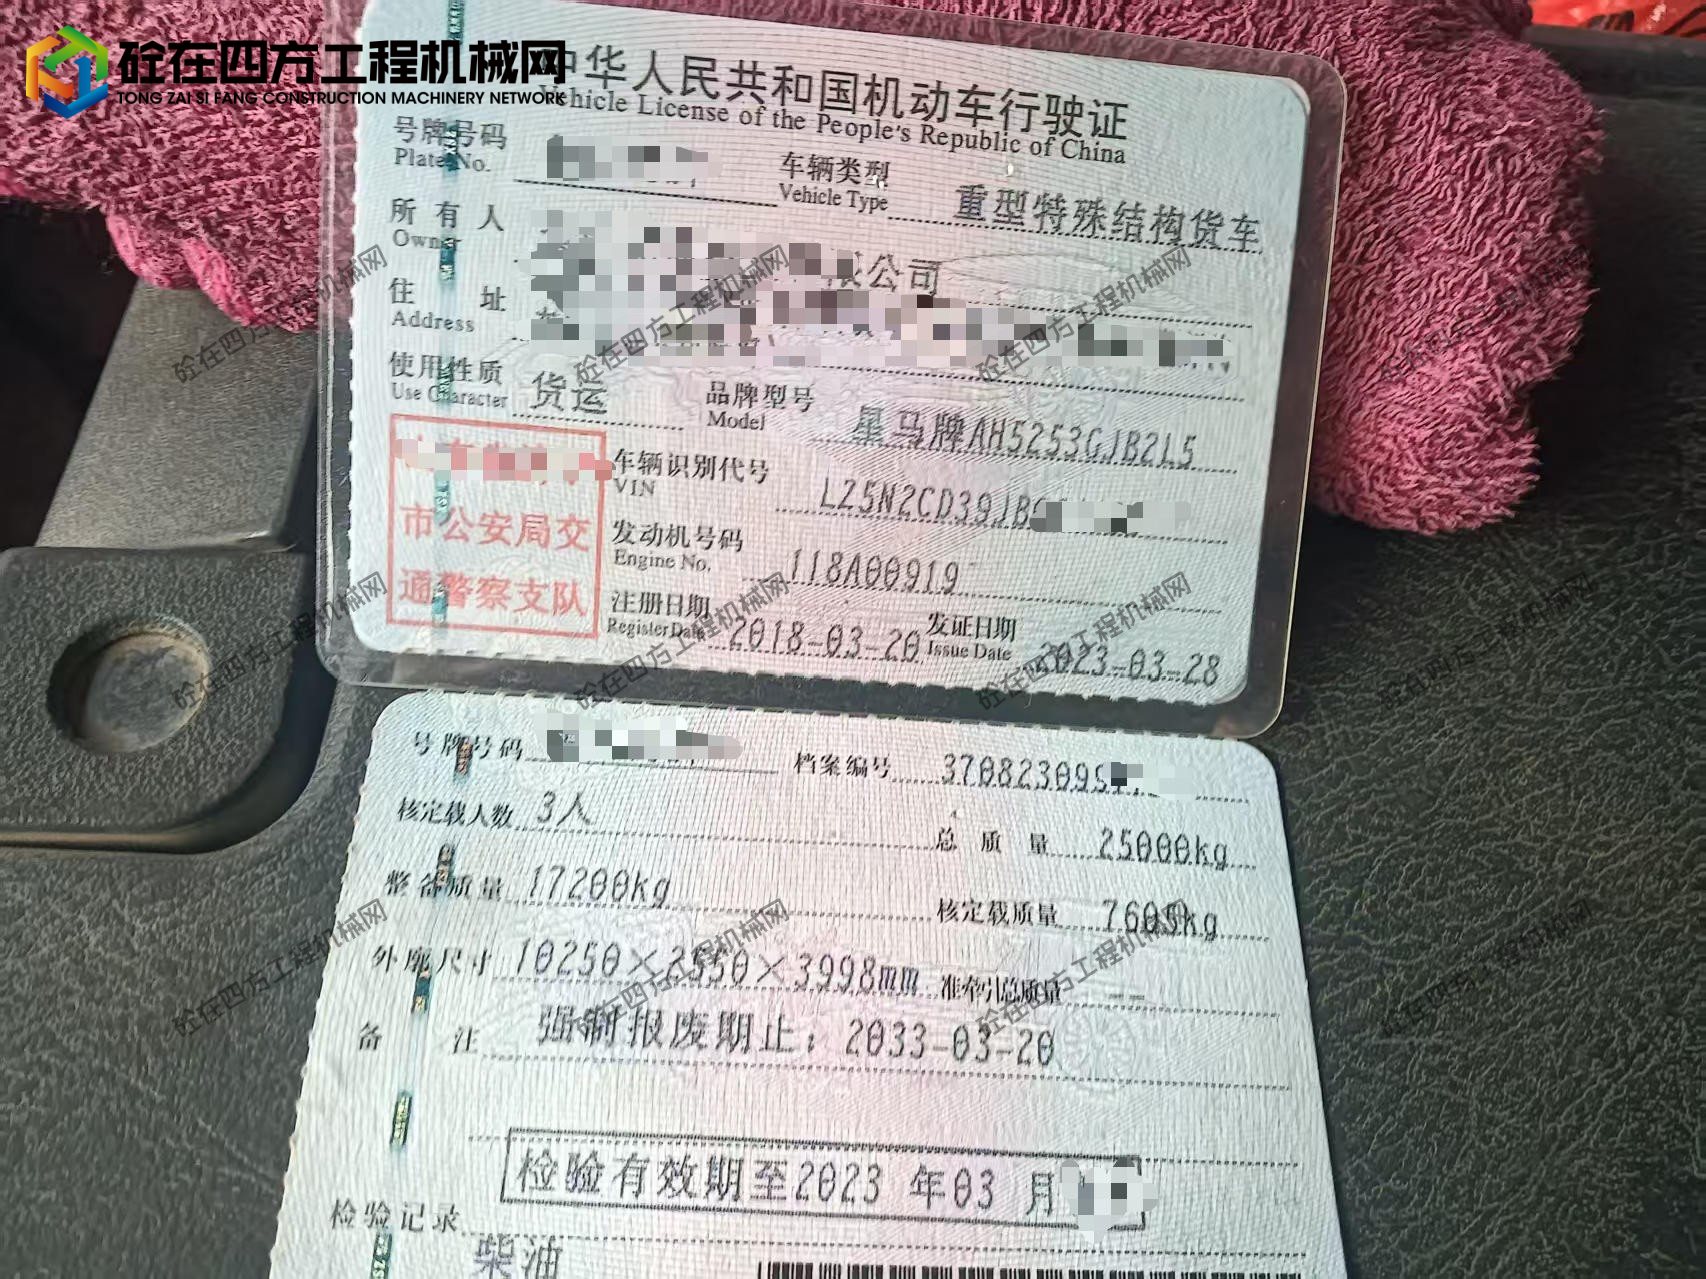 砼在四方工程机械网
TONG ZAI SI FANG CONSTRUCTION MACHINERY NETWORK
中华人民共和国机动车行驶证
Vehicle License of the People's Republic of China
号牌号码
Plate No.
车辆类型 重型特殊结构货车
Vehicle Type
所有人 限公司
Owner
住址
Address
使用性质 货运
Use Character
品牌型号 星马牌AH5253GJB2L5
Model
市公安局交
通警察支队
车辆识别代号 LZ5N2CD39JB
VIN
发动机号码 118A00919
Engine No.
注册日期 2018-03-20
Register Date
发证日期 2023-03-28
Issue Date
号牌号码
档案编号 370823099
核定载人数 3人
总质量 25000kg
整备质量 17200kg
核定载质量 7605kg
外廓尺寸 10250×2550×3998mm
准牵引总质量 --
备注 强制报废期止：2033-03-20
检验有效期至2023 年03 月
检验记录
柴油
砼在四方工程机械网
砼在四方工程机械网
砼在四方工程机械网
砼在四方工程机械网
砼在四方工程机械网
砼在四方工程机械网
砼在四方工程机械网
砼在四方工程机械网
砼在四方工程机械网
砼在四方工程机械网
砼在四方工程机械网
砼在四方工程机械网